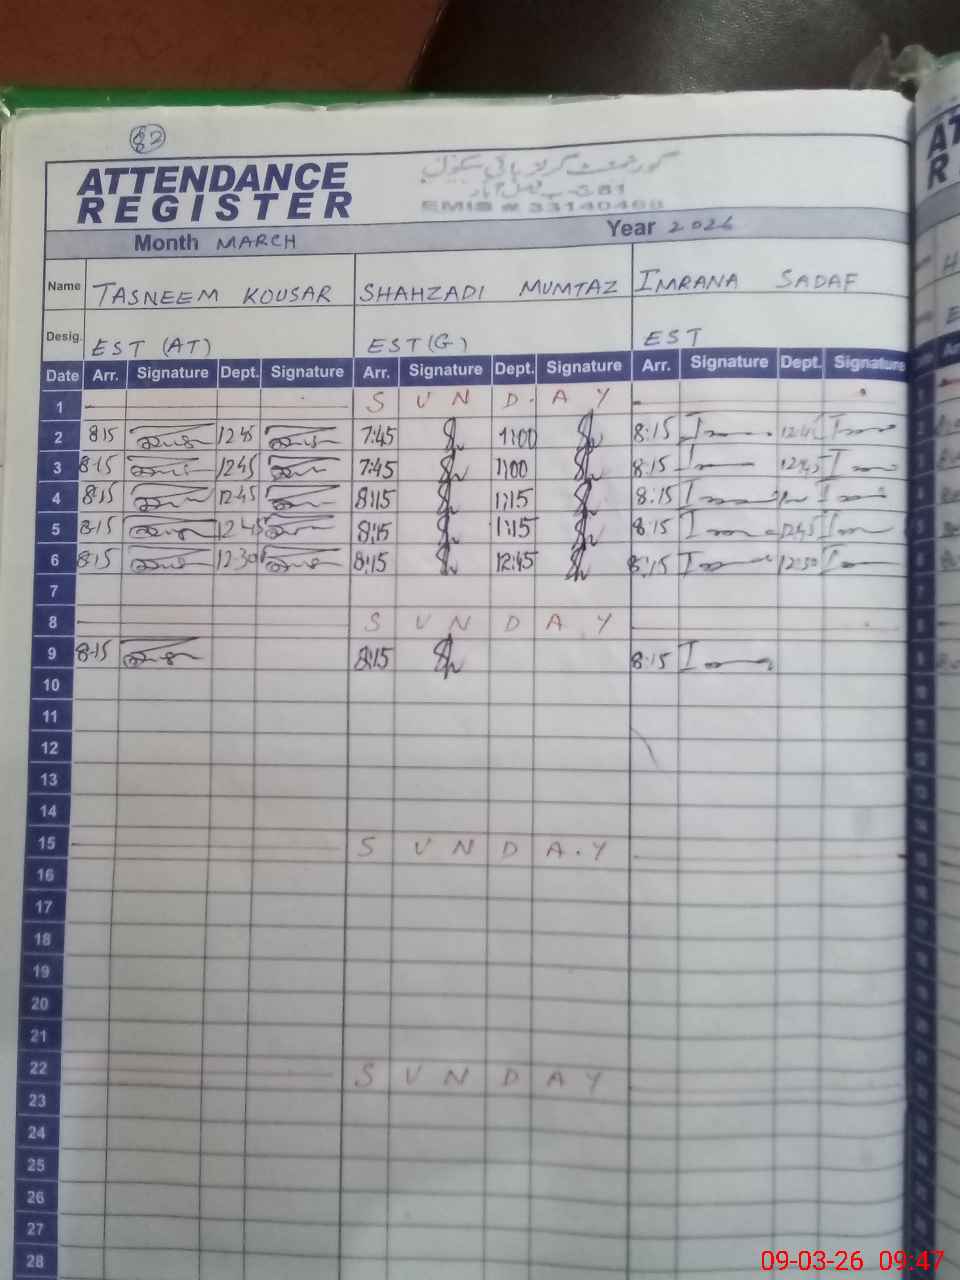 82
ATTENDANCE
REGISTER
گورنمنٹ گرلز ہائی سکول
EMIS # 33140468
Month MARCH Year 2026
Name TASNEEM KOUSAR SHAHZADI MUMTAZ IMRANA SADAF
Desig. EST (AT) EST (G) EST
Date Arr. Signature Dept. Signature Arr. Signature Dept. Signature Arr. Signature Dept. Signature
1 SUNDAY
2 8:15 12:45 7:45 1:00 8:15 12:45
3 8:15 12:45 7:45 1:00 8:15 12:45
4 8:15 12:45 8:15 1:15 8:15
5 8:15 12:45 8:15 1:15 8:15 12:45
6 8:15 12:30 8:15 12:45 8:15 12:30
7
8 SUNDAY
9 8:15 8:15 8:15
10
11
12
13
14
15 SUNDAY
16
17
18
19
20
21
22 SUNDAY
23
24
25
26
27
28
09-03-26 09:47